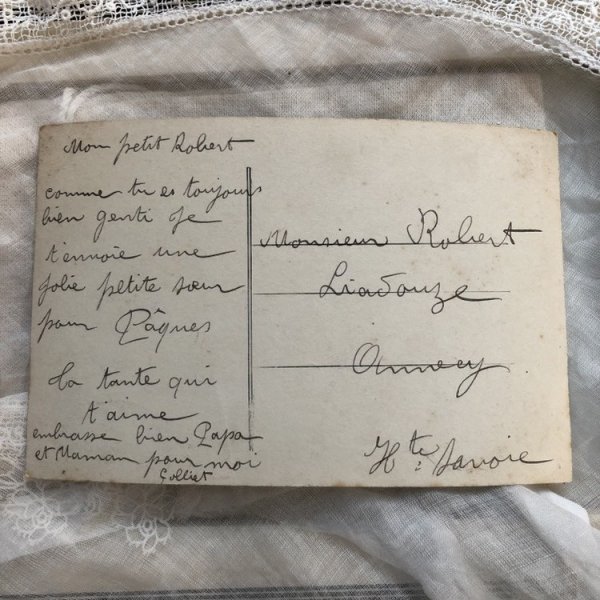 Mon petit Robert
comme tu es toujours
bien genti Je
t'envoie une
jolie petite sœur
pour Pâques
ta tante qui
t'aime
embrasse bien Papa
et Maman pour moi
Golliet
Monsieur Robert
Liadouze
Annecy
Hte Savoie